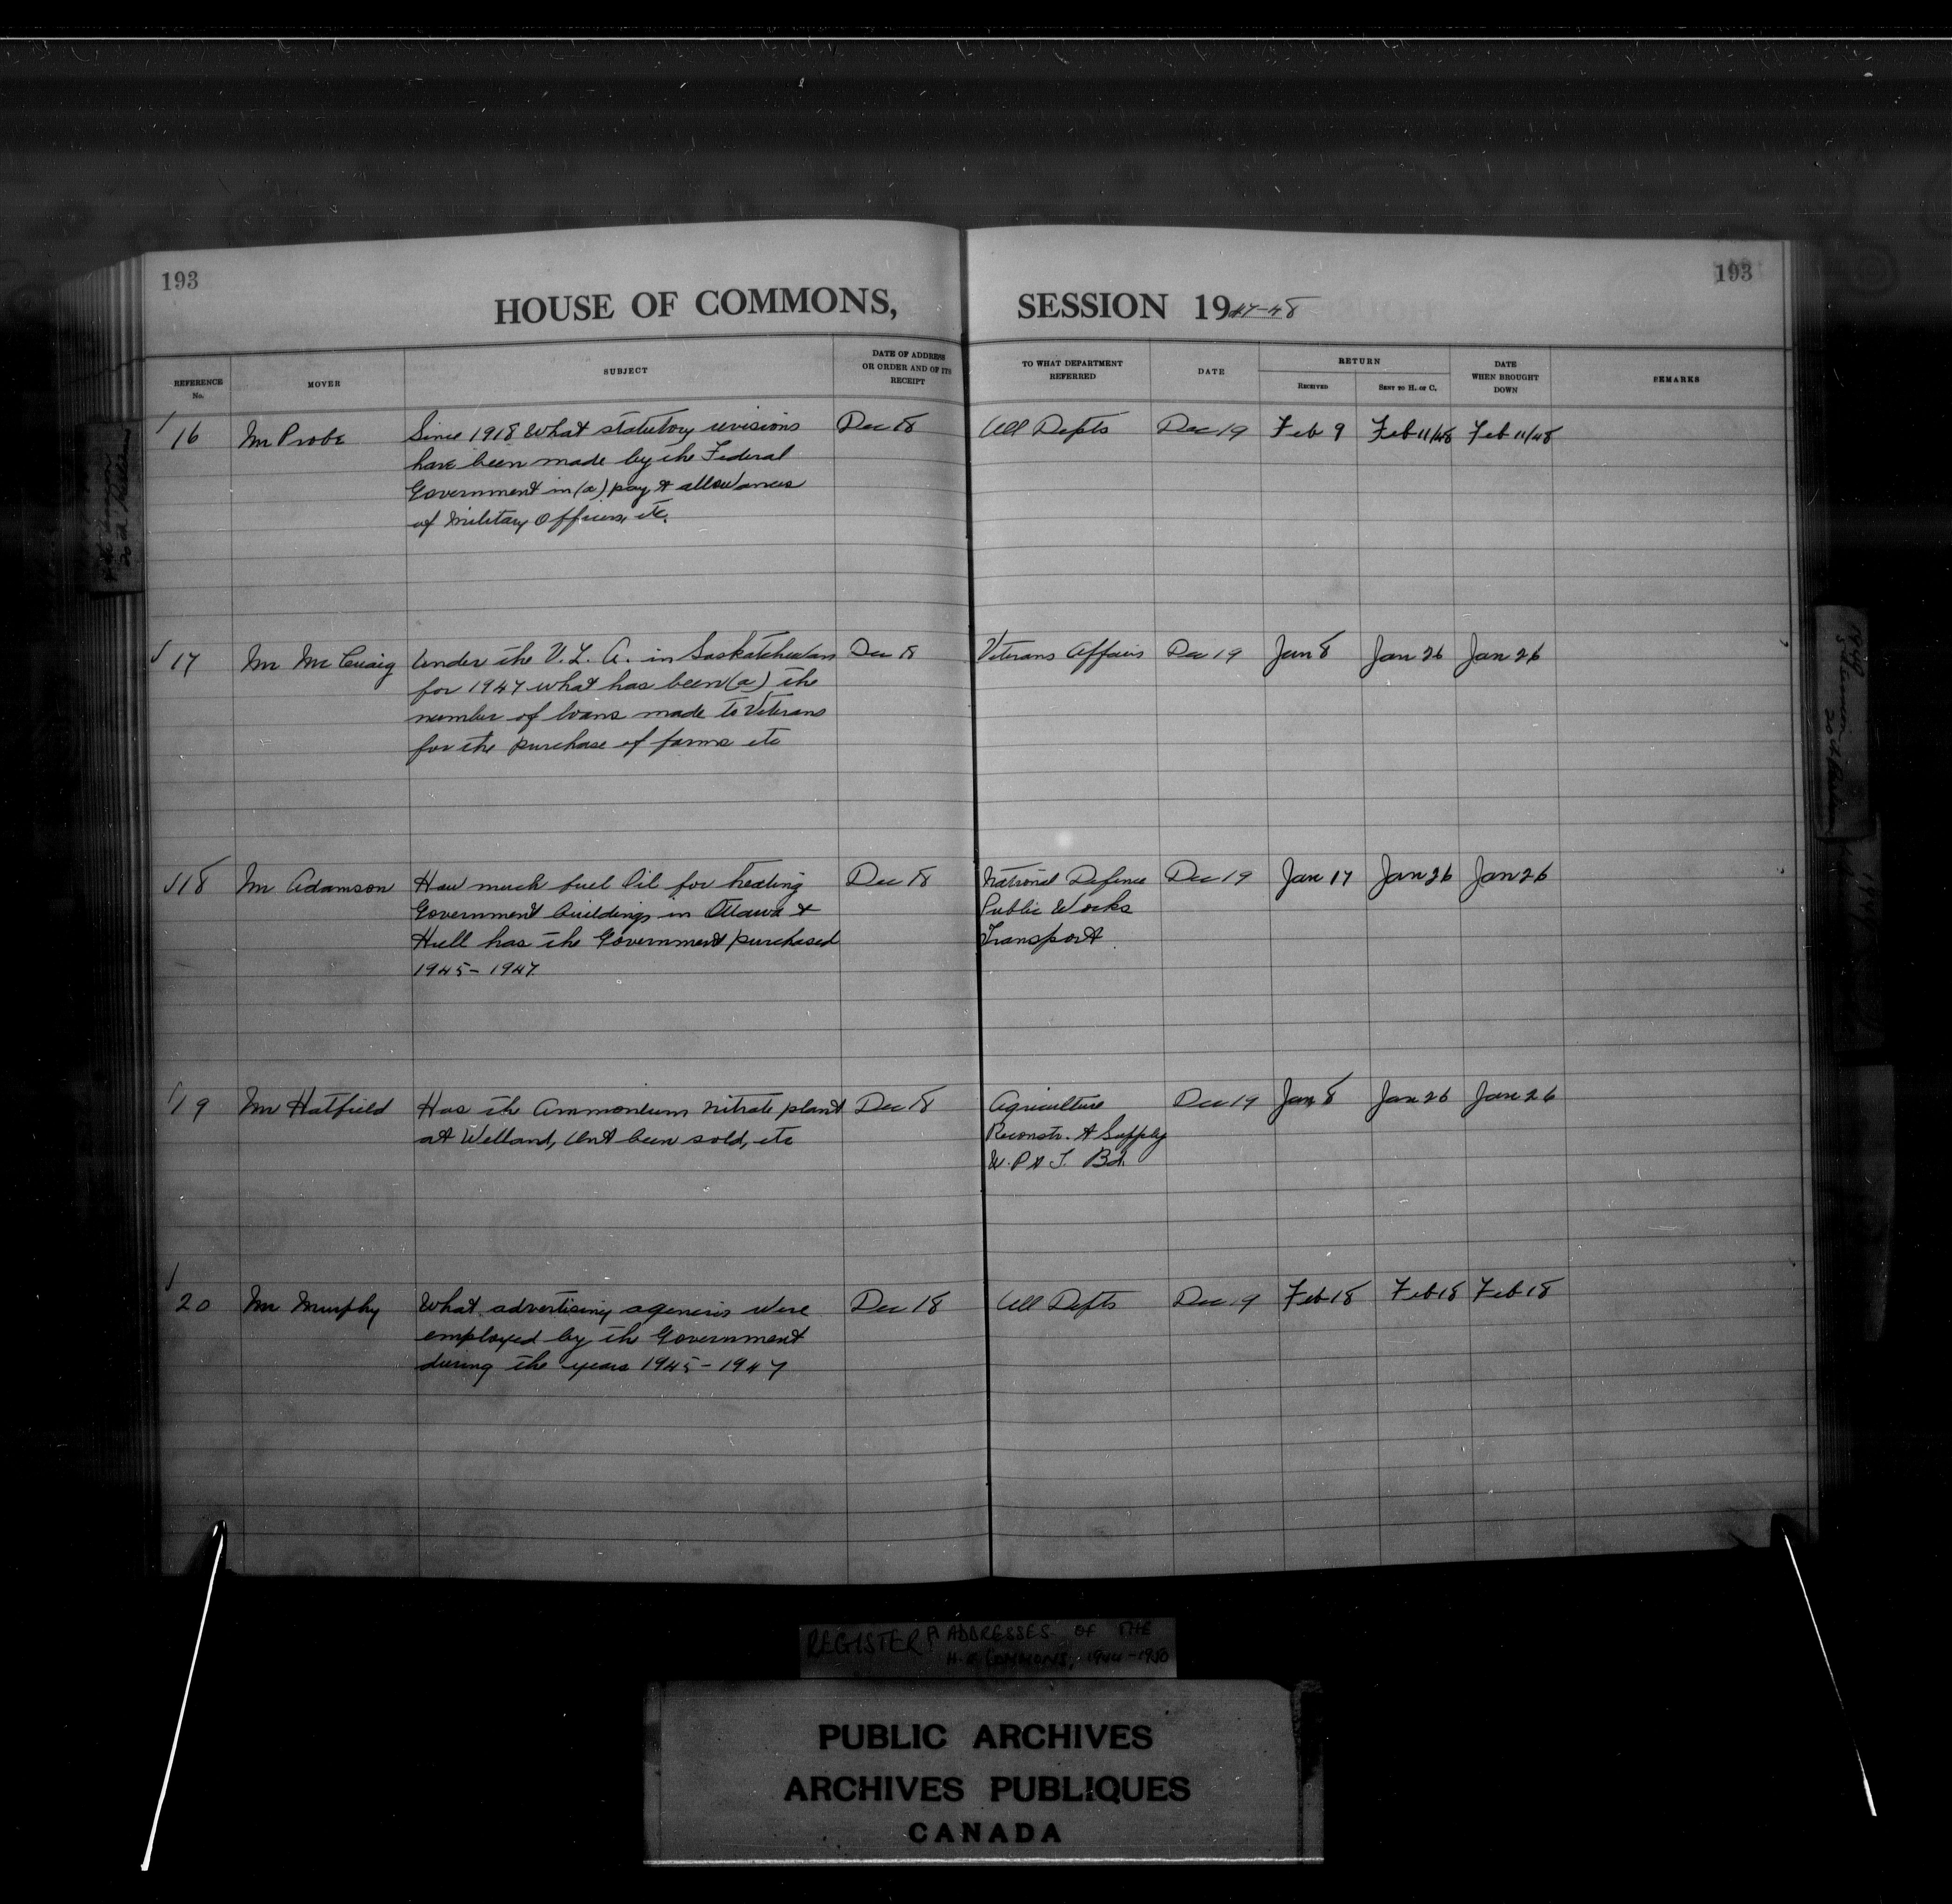 193
193
HOUSE OF COMMONS,
SESSION 1947-48
REFERENCE No.
MOVER
SUBJECT
DATE OF ADDRESS OR ORDER AND OF ITS RECEIPT
TO WHAT DEPARTMENT REFERRED
DATE
RETURN
RECEIVED
SENT TO H. OF C.
DATE WHEN BROUGHT DOWN
REMARKS
16 Mr Probe Since 1918 What statutory revisions Dec 18 All Depts Dec 19 Feb 9 Feb 11/48 Feb 11/48
have been made by the Federal
Government in (a) pay & allowances
of Military Officers, etc.
17 Mr McCuaig Under the V. L. A. in Saskatchewan Dec 18 Veterans Affairs Dec 19 Jan 8 Jan 26 Jan 26
for 1947 what has been (a) the
number of loans made to Veterans
for the purchase of farms etc
18 Mr Adamson How much fuel Oil for heating Dec 18 National Defence Dec 19 Jan 17 Jan 26 Jan 26
Government buildings in Ottawa & Public Works
Hull has the Government purchased Transport
1945-1947
19 Mr Hatfield Has the Ammonium nitrate plant Dec 18 Agriculture Dec 19 Jan 8 Jan 26 Jan 26
at Welland, Ont been sold, etc Reconstr. & Supply
W. P & T. Bd.
20 Mr Murphy What advertising agencies were Dec 18 All Depts Dec 19 Feb 18 Feb 18 Feb 18
employed by the Government
during the years 1945-1947
REGISTER: ADDRESSES OF THE
H. of COMMONS, 1944-1950
PUBLIC ARCHIVES
ARCHIVES PUBLIQUES
CANADA